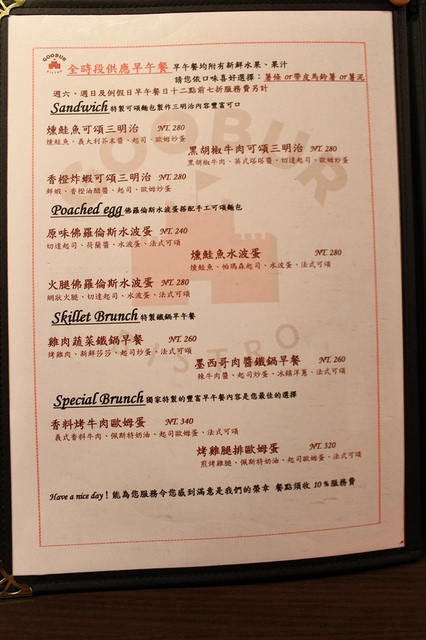 GOOBUR
BISTRO
全時段供應早午餐 早午餐均附有新鮮水果、果汁
請您依口味喜好選擇：薯條 or帶皮馬鈴薯 or薯泥
週六、週日及例假日早午餐日十二點前七折服務費另計
Sandwich 特製可頌麵包製作三明治內容豐富可口
燻鮭魚可頌三明治 NT. 280
燻鮭魚、義大利芥末醬、起司、歐姆炒蛋
黑胡椒牛肉可頌三明治 NT. 280
黑胡椒牛肉、英式塔塔醬、切達起司、歐姆炒蛋
香橙炸蝦可頌三明治 NT. 280
鮮蝦、香橙油醋醬、起司、歐姆炒蛋
Poached egg 佛羅倫斯水波蛋搭配手工可頌麵包
原味佛羅倫斯水波蛋 NT. 240
切達起司、荷蘭醬、水波蛋、法式可頌
燻鮭魚水波蛋 NT. 280
燻鮭魚、帕瑪森起司、水波蛋、法式可頌
火腿佛羅倫斯水波蛋 NT. 280
網狀火腿、切達起司、水波蛋、法式可頌
Skillet Brunch 特製鐵鍋早午餐
雞肉蔬菜鐵鍋早餐 NT. 260
烤雞肉、新鮮莎莎、起司炒蛋、法式可頌
墨西哥肉醬鐵鍋早餐 NT. 260
辣牛肉醬、起司炒蛋、冰鎮洋蔥、法式可頌
Special Brunch 獨家特製的豐富早午餐內容是您最佳的選擇
香料烤牛肉歐姆蛋 NT. 340
義式香料牛肉、佩斯特奶油、起司歐姆蛋、法式可頌
烤雞腿排歐姆蛋 NT. 320
煎烤雞腿、佩斯特奶油、起司歐姆蛋、法式可頌
Have a nice day！能為您服務令您感到滿意是我們的榮幸 餐點須收 10％服務費
GOOBUR
BISTRO